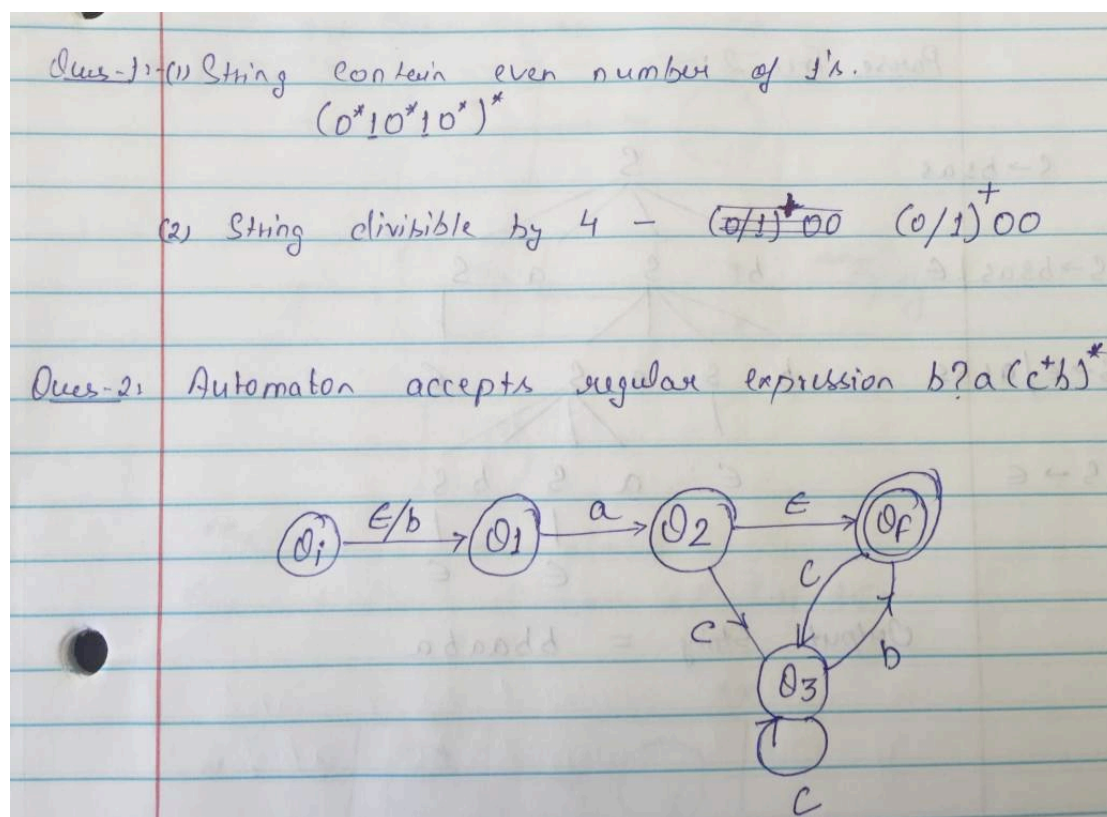 Ques-1:-(1) String contain even number of 1's.
(0*10*10*)*
(2) String divisible by 4 - (0/1)+00 (0/1)+00
Ques-2: Automaton accepts regular expression b?a(c+b)*
Qi ϵ/b Q1 a Q2 ϵ Qf
C
C b
Q3
C